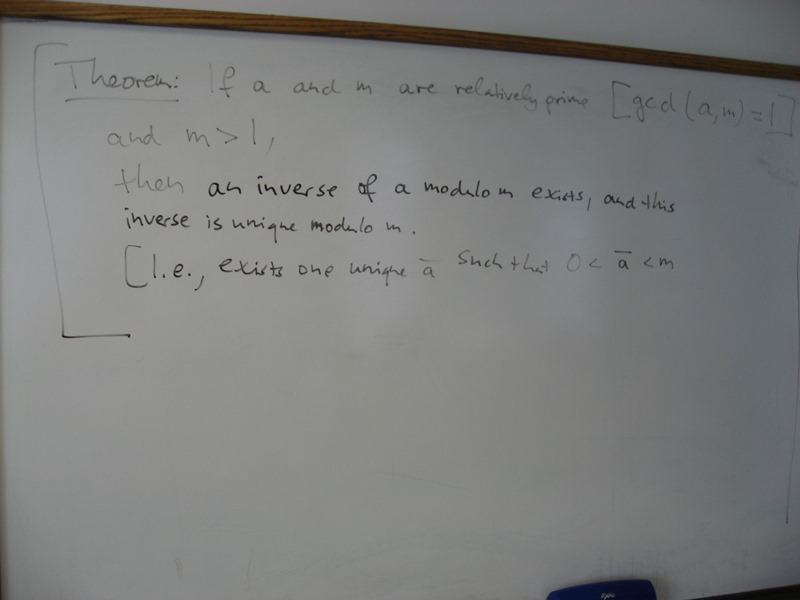 Theorem: If a and m are relatively prime [gcd(a,m)=1]
and m>1,
then an inverse of a modulo m exists, and this
inverse is unique modulo m.
[I.e., exists one unique a̅ such that 0 < a̅ < m